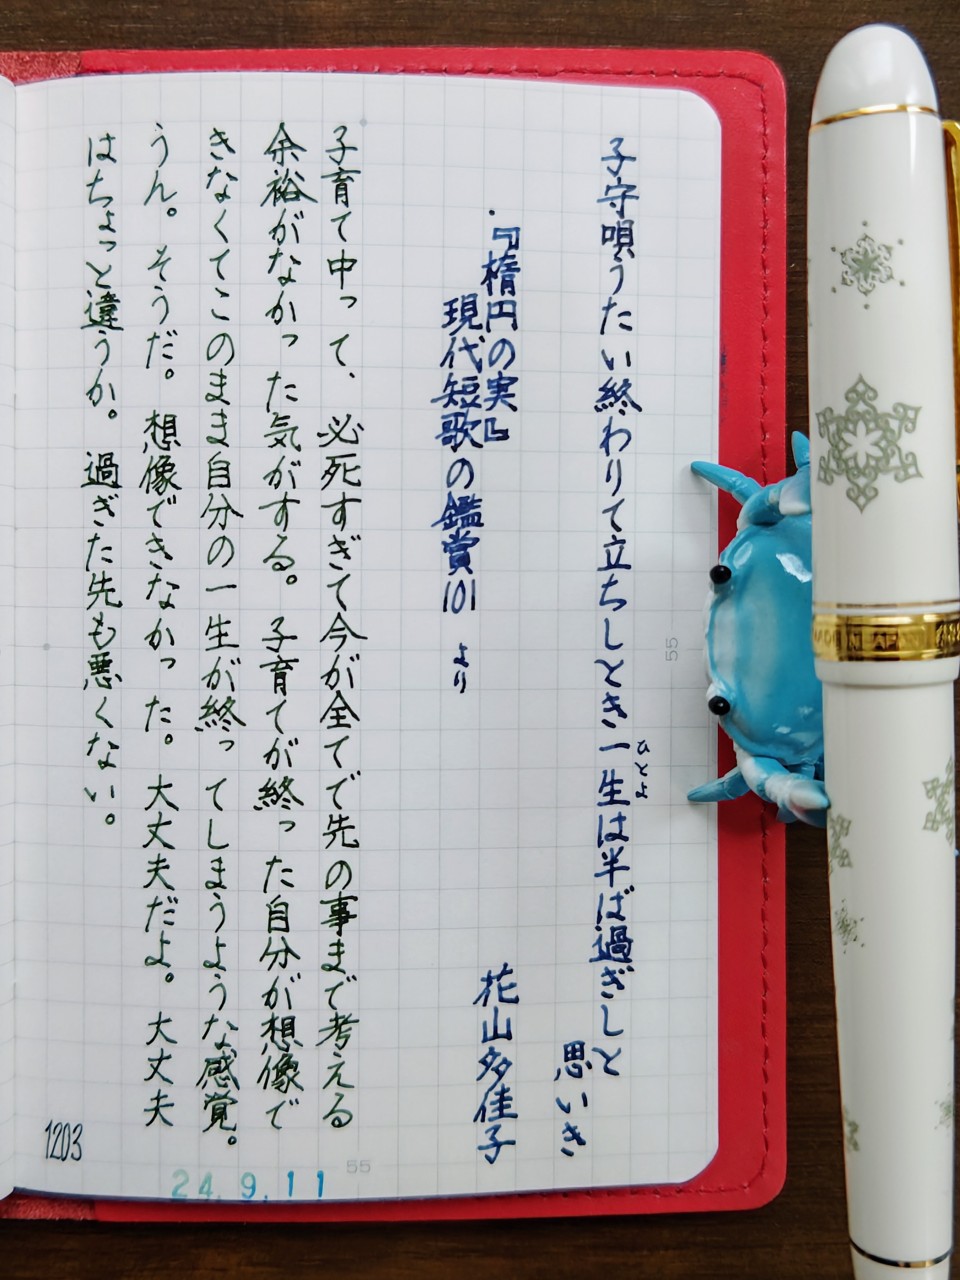 子守唄うたい終わりて立ちしとき一生は半ば過ぎしと
ひとよ
思いき
『楕円の実』
現代短歌の鑑賞101 より
花山多佳子
子育て中って、必死すぎて今が全てで先の事まで考える
余裕がなかった気がする。子育てが終った自分が想像で
きなくてこのまま自分の一生が終ってしまうような感覚。
うん。そうだ。想像できなかった。大丈夫だよ。大丈夫
はちょっと違うか。過ぎた先も悪くない。
1203
24.9.11
55
55
MADE IN JAPAN